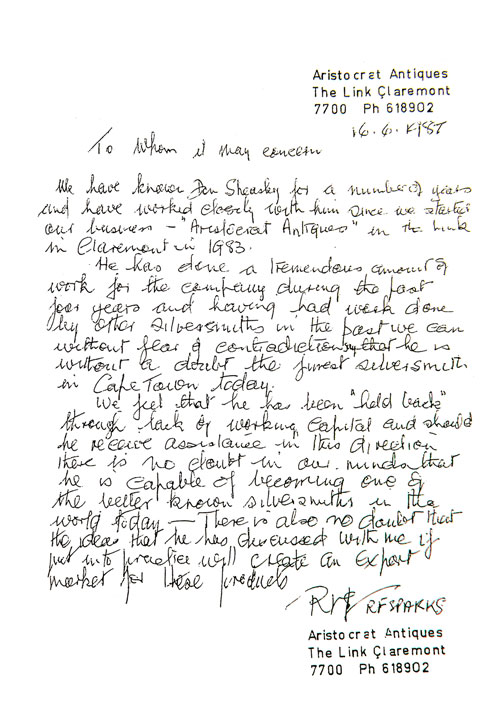 Aristocrat Antiques
The Link Çlaremont
7700 Ph 618902
16.6.1987
To Whom it may concern
We have known Dan Sheasby for a number of years
and have worked closely with him since we started
our business - "Aristocrat Antiques" in the Link
in Claremont in 1983.
He has done a tremendous amount of
work for the company during the past
four years and having had work done
by other silversmiths in the past we can
without fear of contradiction say that he is
without a doubt the finest silversmith
in Cape Town today.
We feel that he has been "held back"
through lack of working capital and should
he receive assistance in this direction
there is no doubt in our minds that
he is capable of becoming one of
the better known silversmiths in the
world today — There is also no doubt that
the ideas that he has discussed with me if
put into practice will create an Export
market for these products
RF SPARKS
Aristocrat Antiques
The Link Çlaremont
7700 Ph 618902